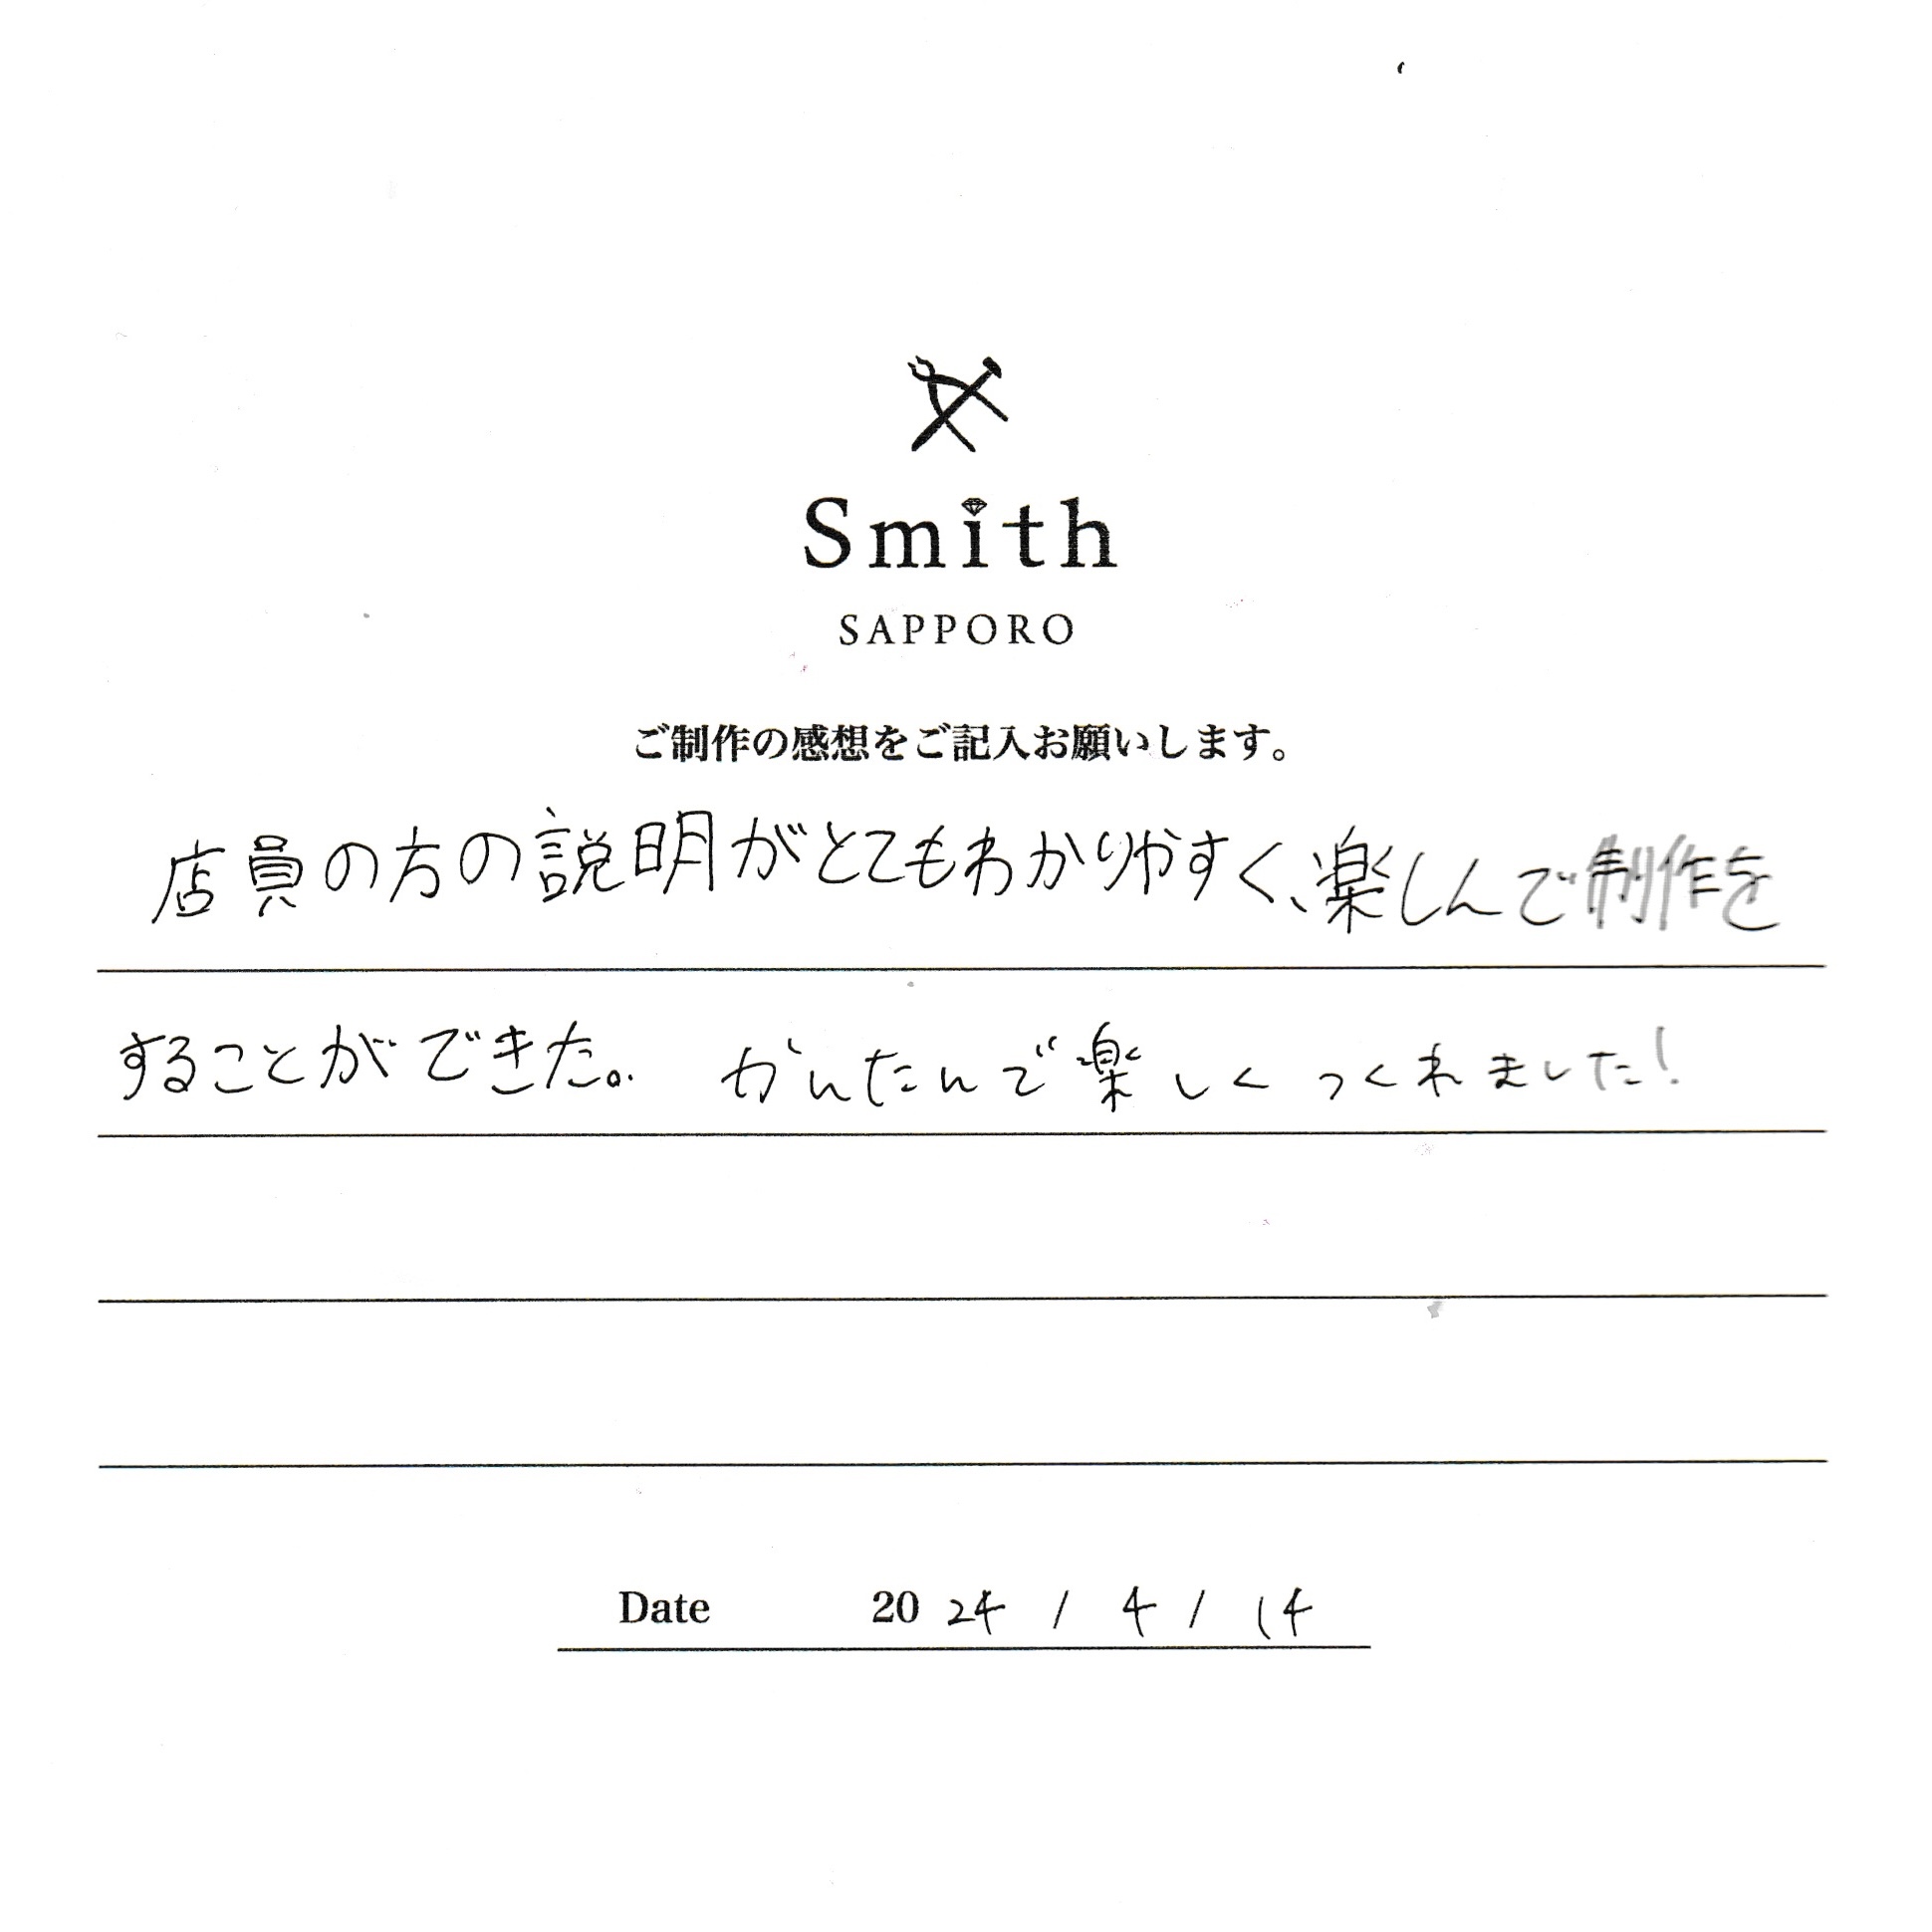 Smith
SAPPORO
ご制作の感想をご記入お願いします。
店員の方の説明がとてもわかりやすく、楽しんで制作を
することができた。 かんたんで楽しく つくれました!
Date 2024 / 4 / 14